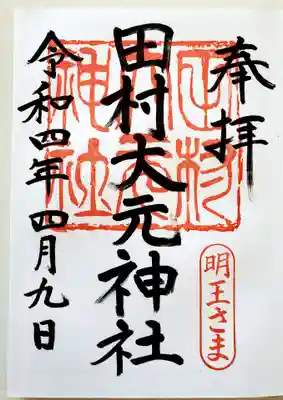 奉拝
田村大元神社
令和四年四月九日
明王さま